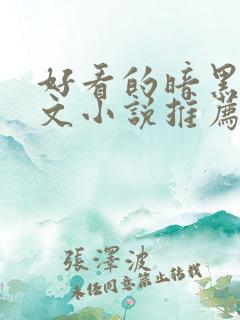 好看的暗黑
文小说推薦
張澤波
未经同意禁止转载